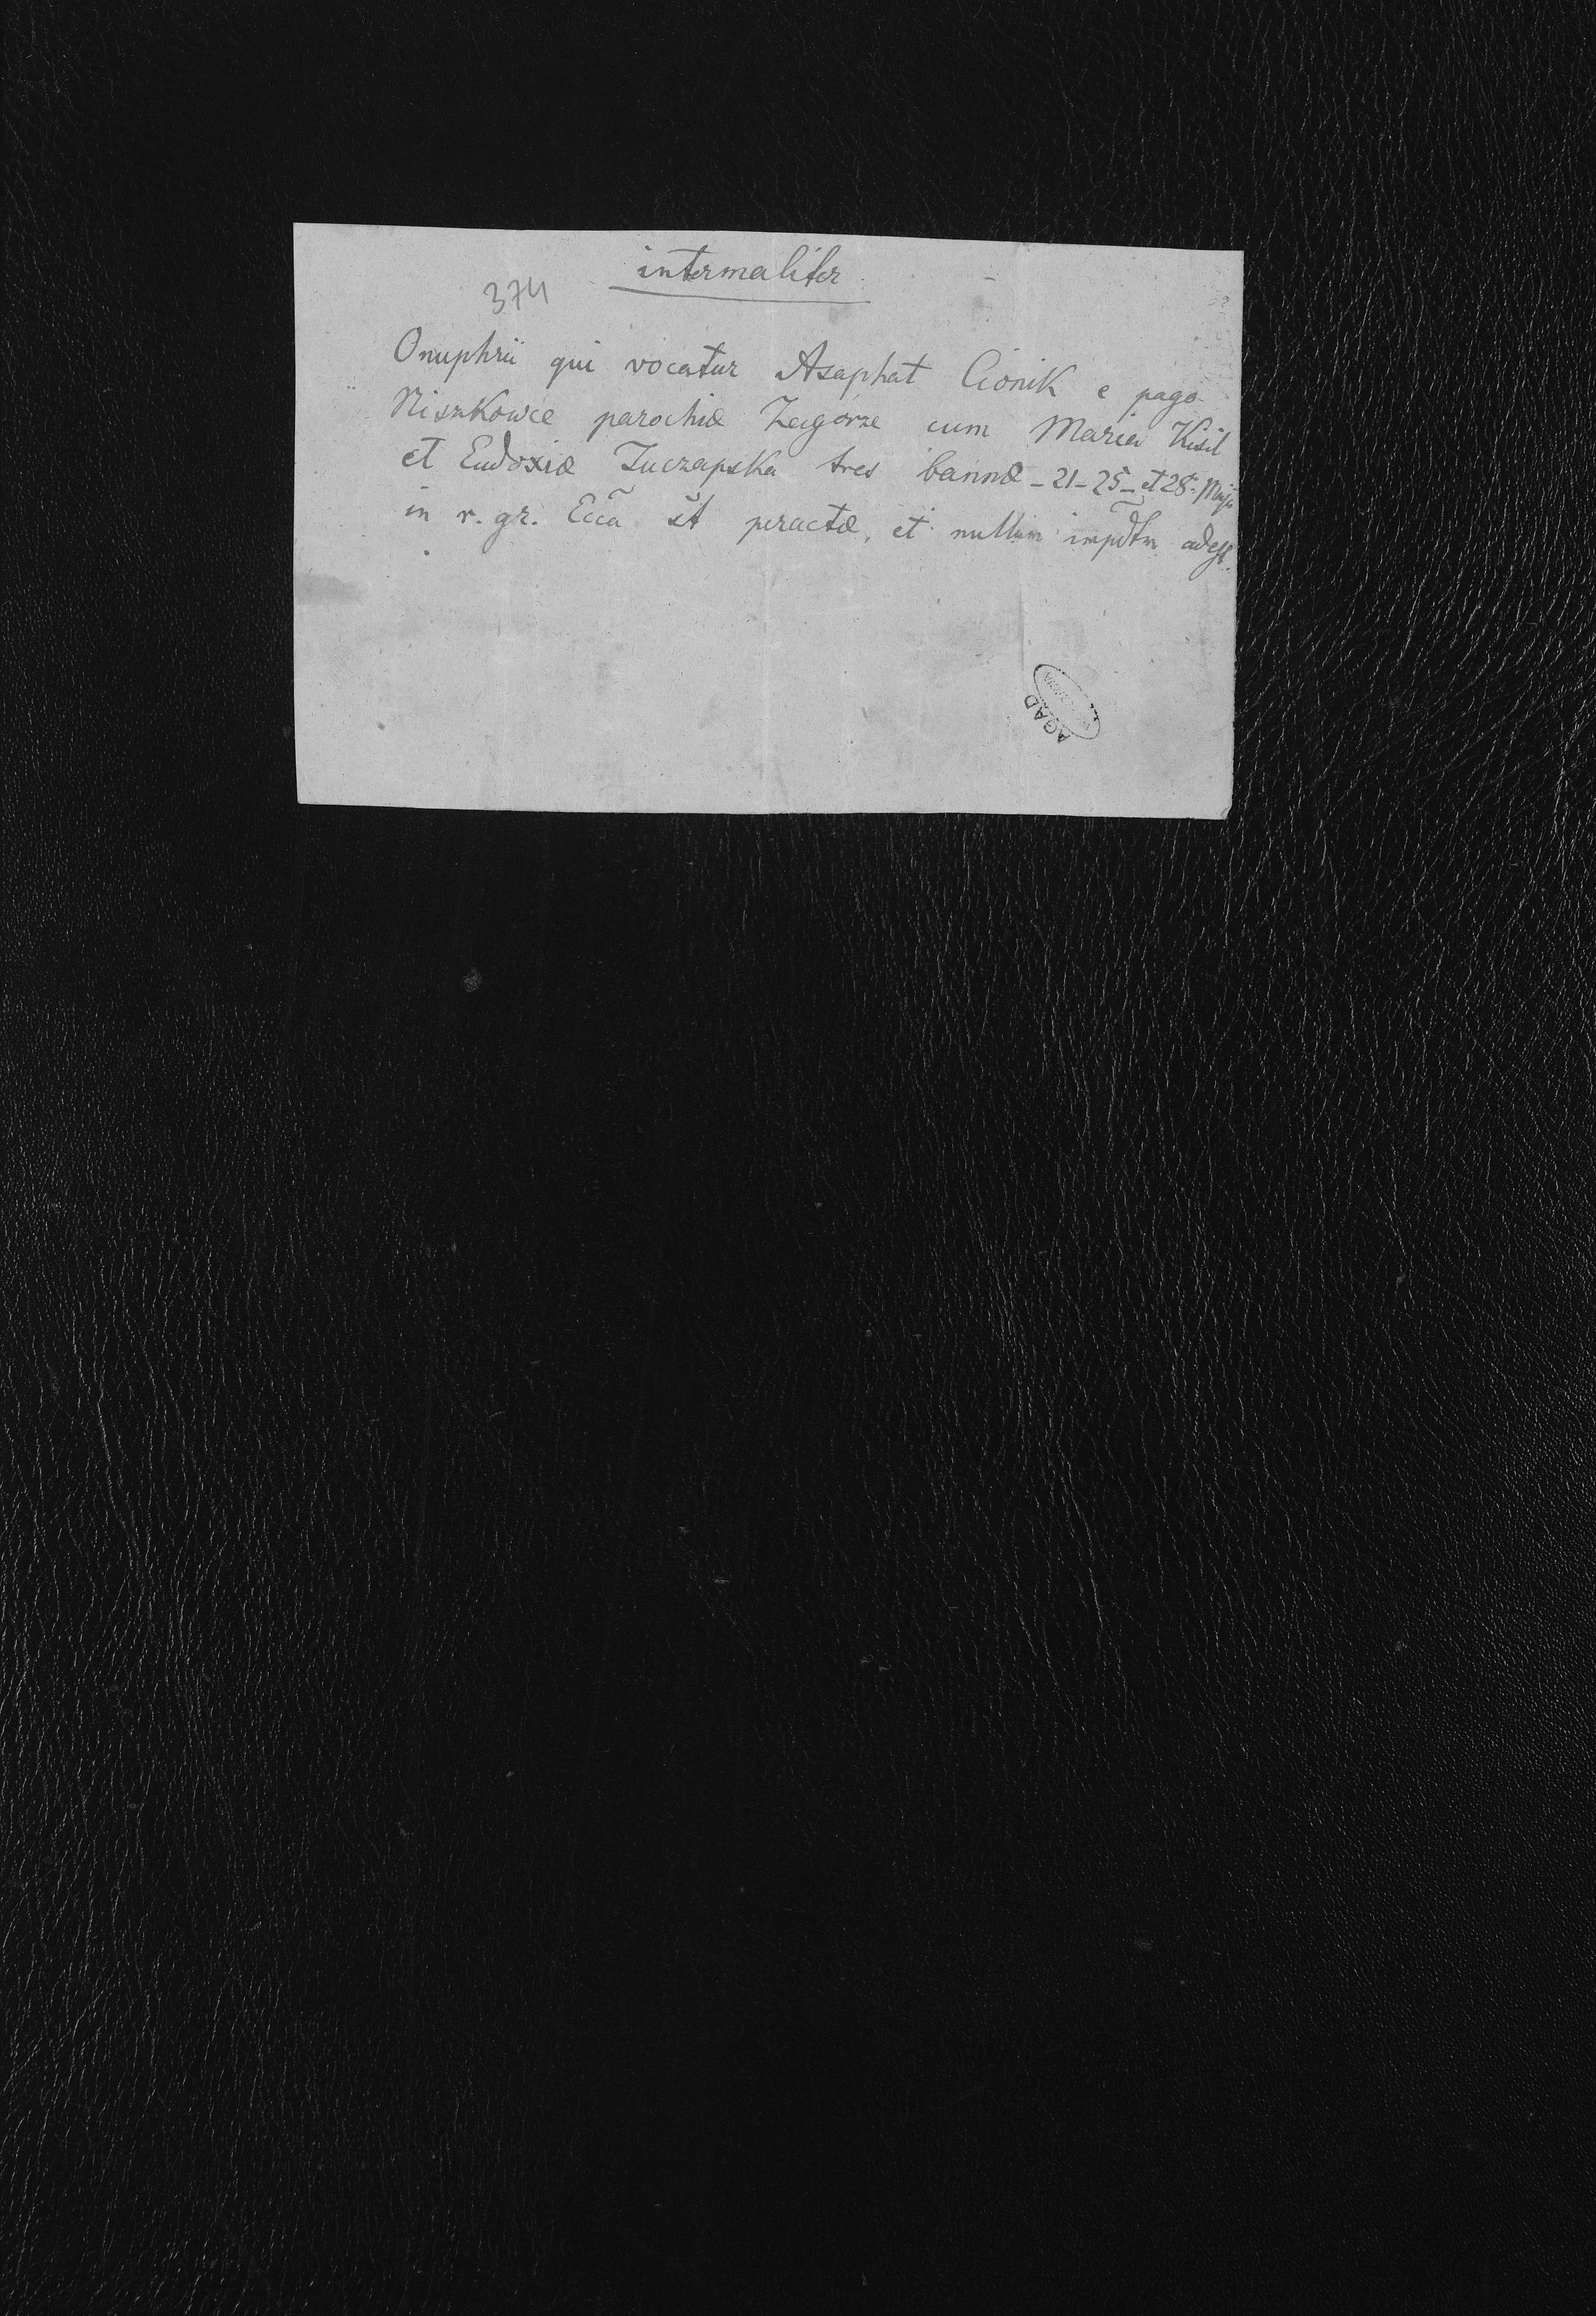 intermaliter
374
Onuphrii qui vocatur Asaphat Cionik e pago
Niszkowce parochiæ Zagórze cum Maria Kisil
et Eudoxiæ Tuczapska tres bannæ - 21 - 25 - et 28 - Maji
in r. gr. Ecc̃a s̃t peractæ, et nullum imp̃dtm adest.
AGAD